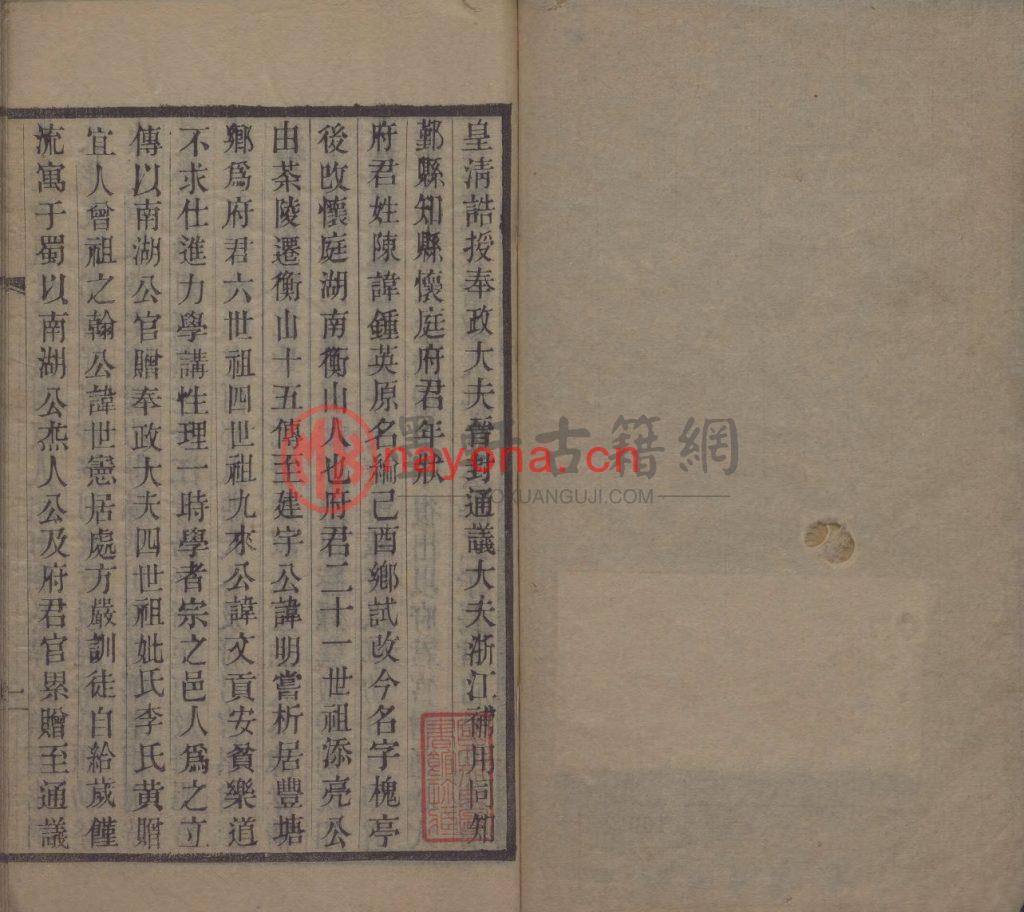 皇清誥授奉政大夫晉封通議大夫浙江補用同知
鄞縣知縣懷庭府君年狀
府君姓陳諱鍾英原名綸己酉鄉試改今名字槐亭
後改懷庭湖南衡山人也府君二十一世祖添亮公
由茶陵遷衡山十五傳至建宇公諱明嘗析居豐塘
鄉爲府君六世祖四世祖九來公諱文貢安貧樂道
不求仕進力學講性理一時學者宗之邑人爲之立
傳以南湖公官贈奉政大夫四世祖妣氏李氏黃贈
宜人曾祖之翰公諱世憲居處方嚴訓徒自給歲僅
流寓于蜀以南湖公杰人公及府君官累贈至通議
nayona.cn
墨軒古籍網
MOXUANGUJI.COM